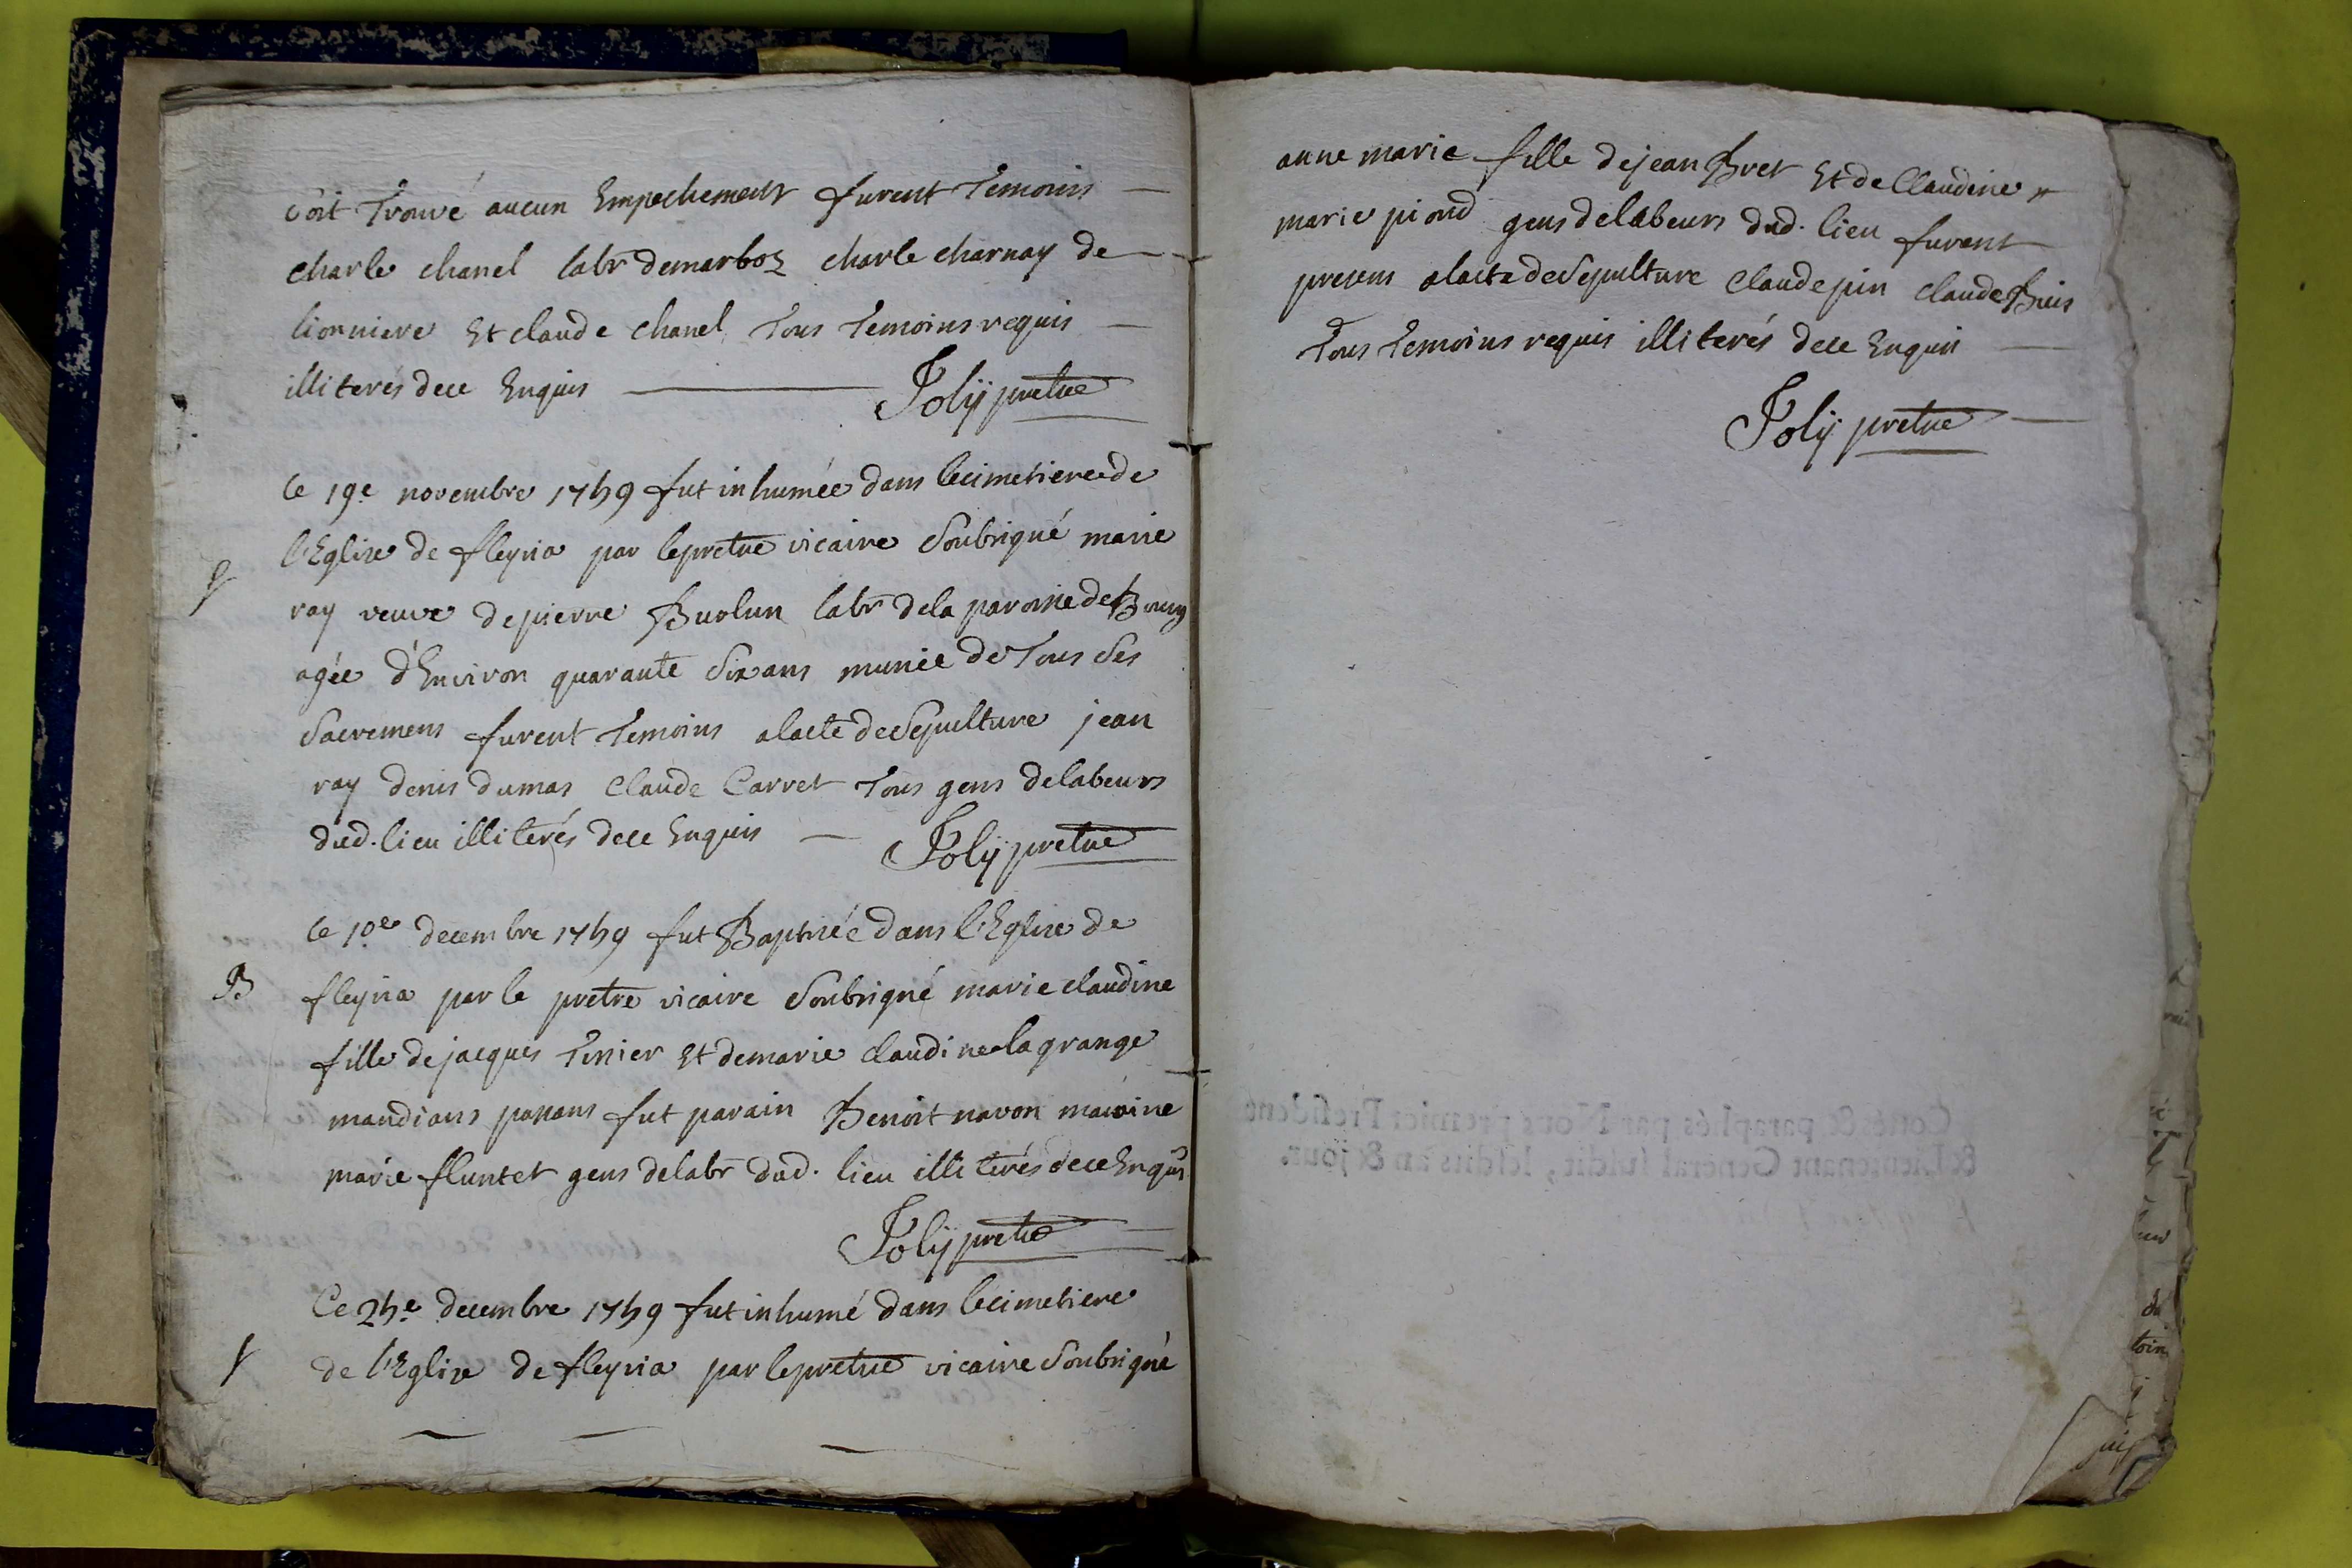 soit Trouvé aucun Empechement furent Temoins
charle chanel labr demarboz charle charnay de
lionniere Et claude chanel Tous Temoins requis
illiterés dece Enquis Joly pretre
le 19e novembre 1759 fut inhumée dans lecimetiere de
l'Eglise de fleyria par lepretre vicaire Soubsigné marie
ray veuve depierre Buolun labr dela paroisse de Bourg
agée d'Environ quarante Six ans munie de Tous Ses
Sacremens furent Temoins alacte deSepulture jean
ray denis dumas Claude Carret Tous gens delabeurs
dud. lieu illiterés dece Enquis Joly pretre
le 10e decembre 1759 fut Baptisée dans l'Eglise de
B fleyria par le pretre vicaire Soubsigné marie claudine
fille dejacques Tissier Et demarie claudine lagrange
mandians passans fut parain Benoit navon maraine
marie fluntet gens delabr dud. lieu illiterés dece Enquis
Joly pretre
Ce 25e decembre 1759 fut inhumé dans lecimetiere
S de l'Eglise de fleyria par lepretre vicaire Soubsigné
anne marie fille dejean Bret Et de Claudine
marie piond gens delabeurs dud. lieu furent
presens alacte deSepulture Claude pin claude Buis
Tous Temoins requis illiterés dece Enquis
Joly pretre
Cottés & paraphés par Nous premier President
& Lieutenant General susdit, lesdits an & jour.